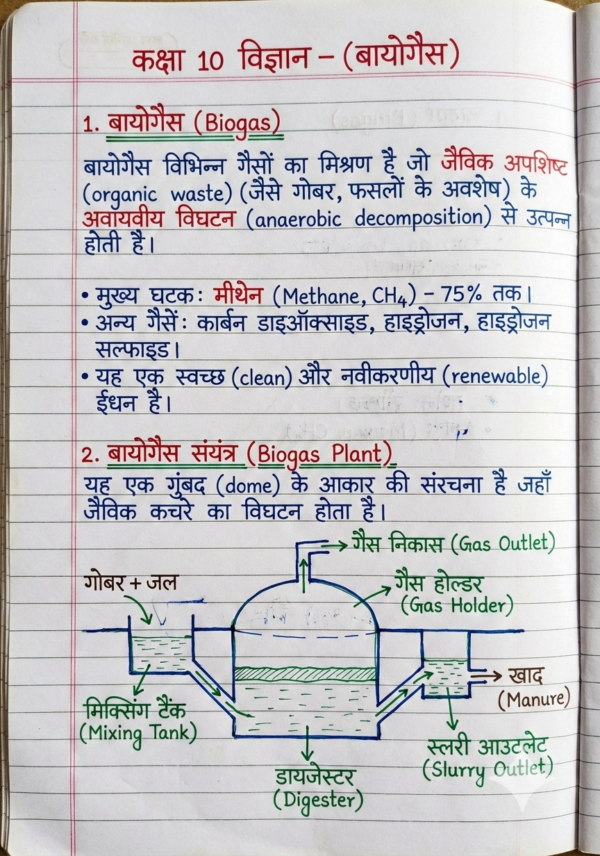 कक्षा 10 विज्ञान – (बायोगैस)
1. बायोगैस (Biogas)
बायोगैस विभिन्न गैसों का मिश्रण है जो जैविक अपशिष्ट
(organic waste) (जैसे गोबर, फसलों के अवशेष) के
अवायवीय विघटन (anaerobic decomposition) से उत्पन्न
होती है।
• मुख्य घटक: मीथेन (Methane, CH₄) – 75% तक।
• अन्य गैसें: कार्बन डाइऑक्साइड, हाइड्रोजन, हाइड्रोजन
सल्फाइड।
• यह एक स्वच्छ (clean) और नवीकरणीय (renewable)
ईंधन है।
2. बायोगैस संयंत्र (Biogas Plant)
यह एक गुंबद (dome) के आकार की संरचना है जहाँ
जैविक कचरे का विघटन होता है।
गैस निकास (Gas Outlet)
गोबर + जल
गैस होल्डर
(Gas Holder)
खाद
(Manure)
मिक्सिंग टैंक
(Mixing Tank)
स्लरी आउटलेट
(Slurry Outlet)
डायजेस्टर
(Digester)